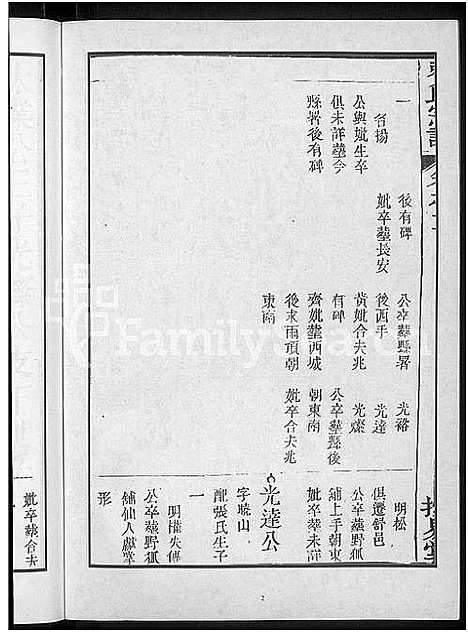 一
名揚
公與妣生卒
俱未詳塟今
縣署後有碑
後有碑
妣卒塟長安
公卒塟縣署
後西手
黃妣合夫兆
有碑
齊妣塟西城
後求雨頂朝
東南
光裕
光達
光燦
公卒塟縣後
朝東南
妣卒合夫兆
明松
俱遷舒邑
公卒塟野狐
鋪上手朝東
妣卒塟未詳
光達公
字曉山
配張氏生子
一
明權失傳
公卒塟野狐
鋪仙人獻掌
形
妣卒塟合夫
FamilySearch
2